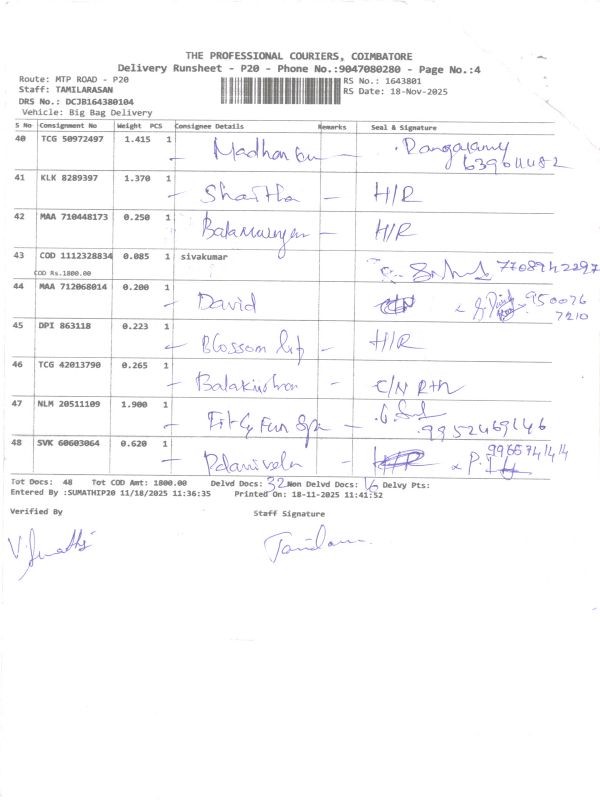 THE PROFESSIONAL COURIERS, COIMBATORE
Delivery Runsheet - P20 - Phone No.:9047080280 - Page No.:4
Route: MTP ROAD - P20 RS No.: 1643801
Staff: TAMILARASAN RS Date: 18-Nov-2025
DRS No.: DCJB164380104
Vehicle: Big Bag Delivery
S No Consignment No Weight PCS Consignee Details Remarks Seal & Signature
40 TCG 50972497 1.415 1
41 KLK 8289397 1.370 1 H/R
42 MAA 710448173 0.250 1 H/R
43 COD 1112328834 0.085 1 sivakumar
COD Rs.1800.00
44 MAA 712068014 0.200 1 David 950076
7210
45 DPI 863118 0.223 1 Blossom H/R
46 TCG 42013790 0.265 1 C/N R+n
47 NLM 20511109 1.900 1 9952469146
48 SVK 60603064 0.620 1 Palanivela
Tot Docs: 48 Tot COD Amt: 1800.00 Delvd Docs: 32 Non Delvd Docs: 16 Delvy Pts:
Entered By :SUMATHIP20 11/18/2025 11:36:35 Printed On: 18-11-2025 11:41:52
Verified By Staff Signature